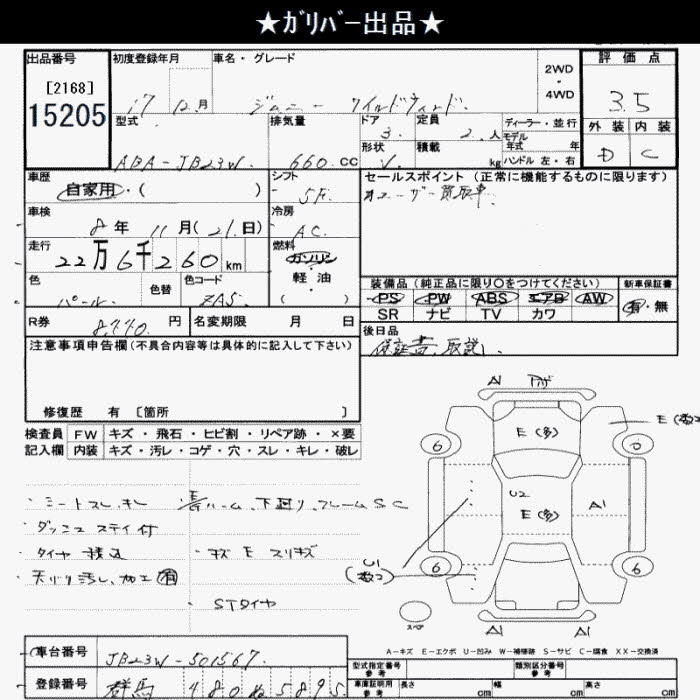 ★ガリバー出品★
出品番号
[2168]
15205
初度登録年月
17 12 月
車名・グレード
ジムニー ワイルドウィンド
2WD
・
4WD
評価点
3.5
外装 内装
D C
型式
ABA-JB23W
排気量
660 cc
ドア
3
形状
V
定員
人
積載
kg
ディーラー・並行
モデル
年式 年
ハンドル 左・右
車歴
自家用・( )
シフト
5F
車検
8 年 11 月 (21 日)
冷房
AC
走行
22万6千260 km
燃料
ガソリン
・
軽・油
( )
色
パール
色替
色コード
ZA5
R券
8,770 円
名変期限 月 日
セールスポイント(正常に機能するものに限ります)
ユーザー買取車
装備品(純正品に限り○をつけてください)
PS PW ABS エアB AW
SR ナビ TV カワ
新車保証書
有・無
後日品
保証書、取説
注意事項申告欄(不具合内容等は具体的に記入して下さい)
修復歴 有 〔箇所 〕
検査員
記入欄
FW キズ・飛石・ヒビ割・リペア跡・×要
内装 キズ・汚レ・コゲ・穴・スレ・キレ・破レ
・シートスレ、キレ
下廻り、フレームSC
・ダッシュ ステイ付
・タイヤ積込
・キズ E スリキズ
・天バリ汚レ、加工有
・STタイヤ
A1
E(多)
E(数コ)
6
0
U2
E(多)
A1
U1
(数コ)
6
6
スペア
A1
A1
A-キズ E-エクボ U-凹み W-補修跡 S-サビ C-腐食 XX-交換済
車台番号
JB23W-501567
登録番号
群馬 480 ぬ 5895
型式指定番号
参考
類別区分番号
参考
車庫証明用
参考
長さ cm
幅 cm
高さ cm